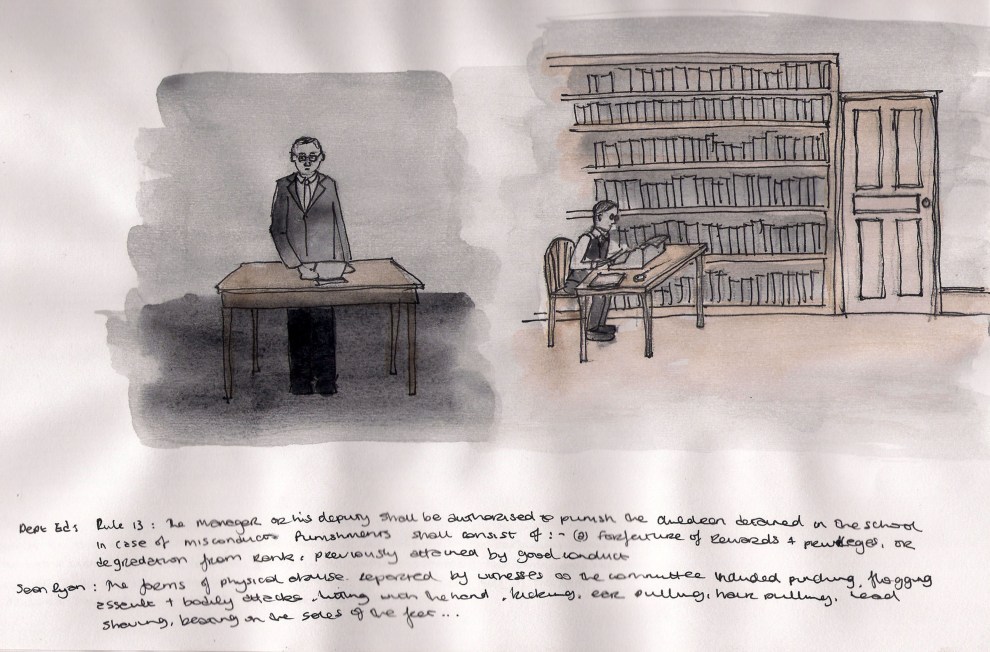 Dept Ed: Rule 13: The manager or his deputy shall be authorised to punish the children detained in the school
in case of misconduct. Punishments shall consist of :- (a) Forfeiture of rewards + privileges, or
degradation from rank, previously attained by good conduct
Sean Ryan: The forms of physical abuse reported by witnesses to the committee included punching, flogging
assault + bodily attacks, hitting with the hand, kicking, ear pulling, hair pulling, head
shaving, beating on the soles of the feet...